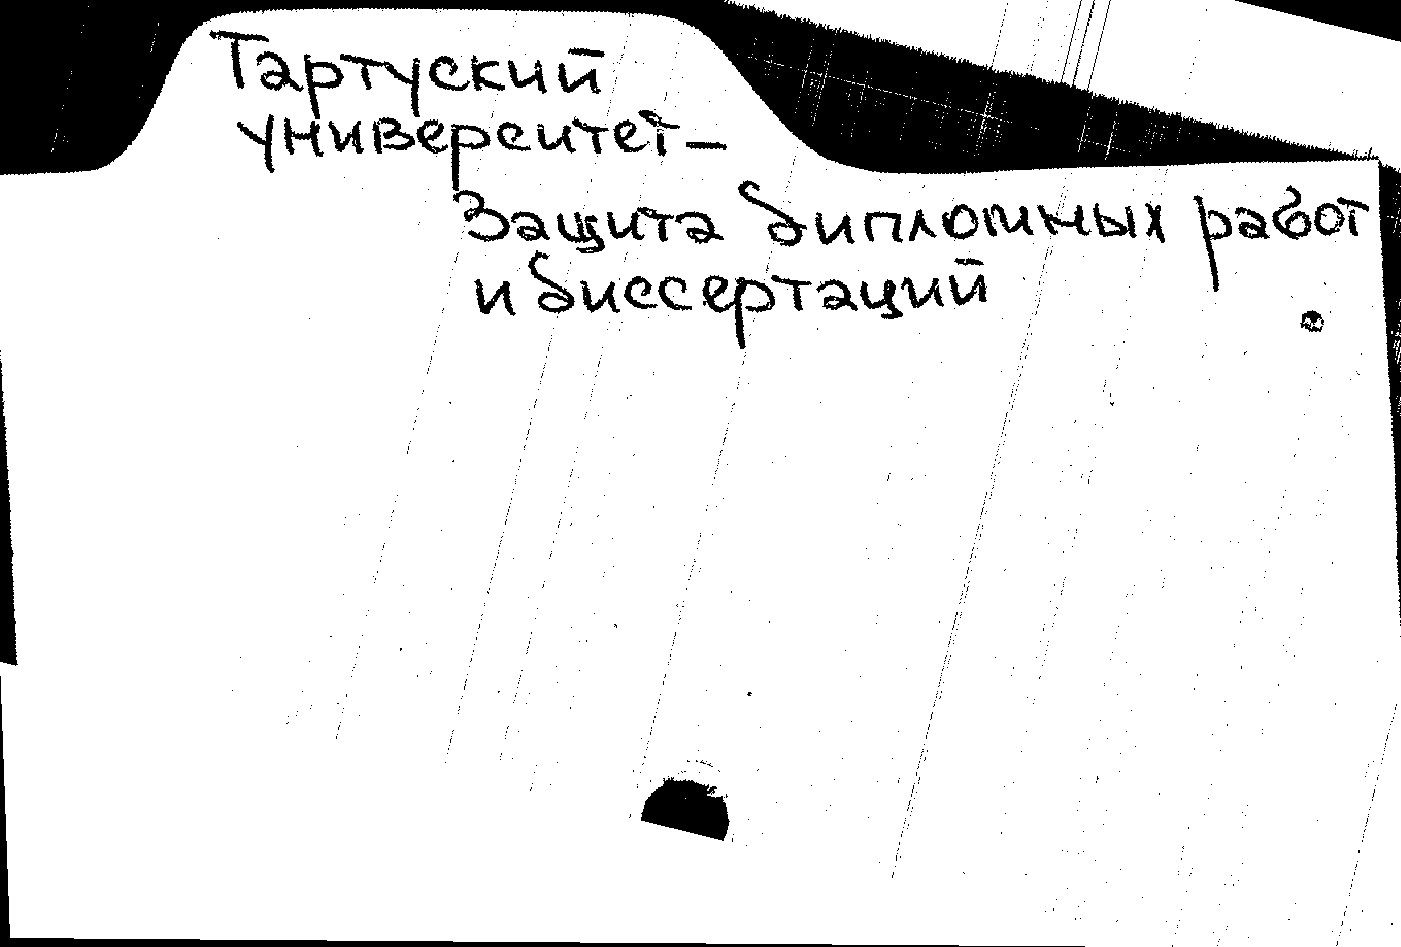 Тартуский
университет-
Защита дипломных работ
и диссертаций